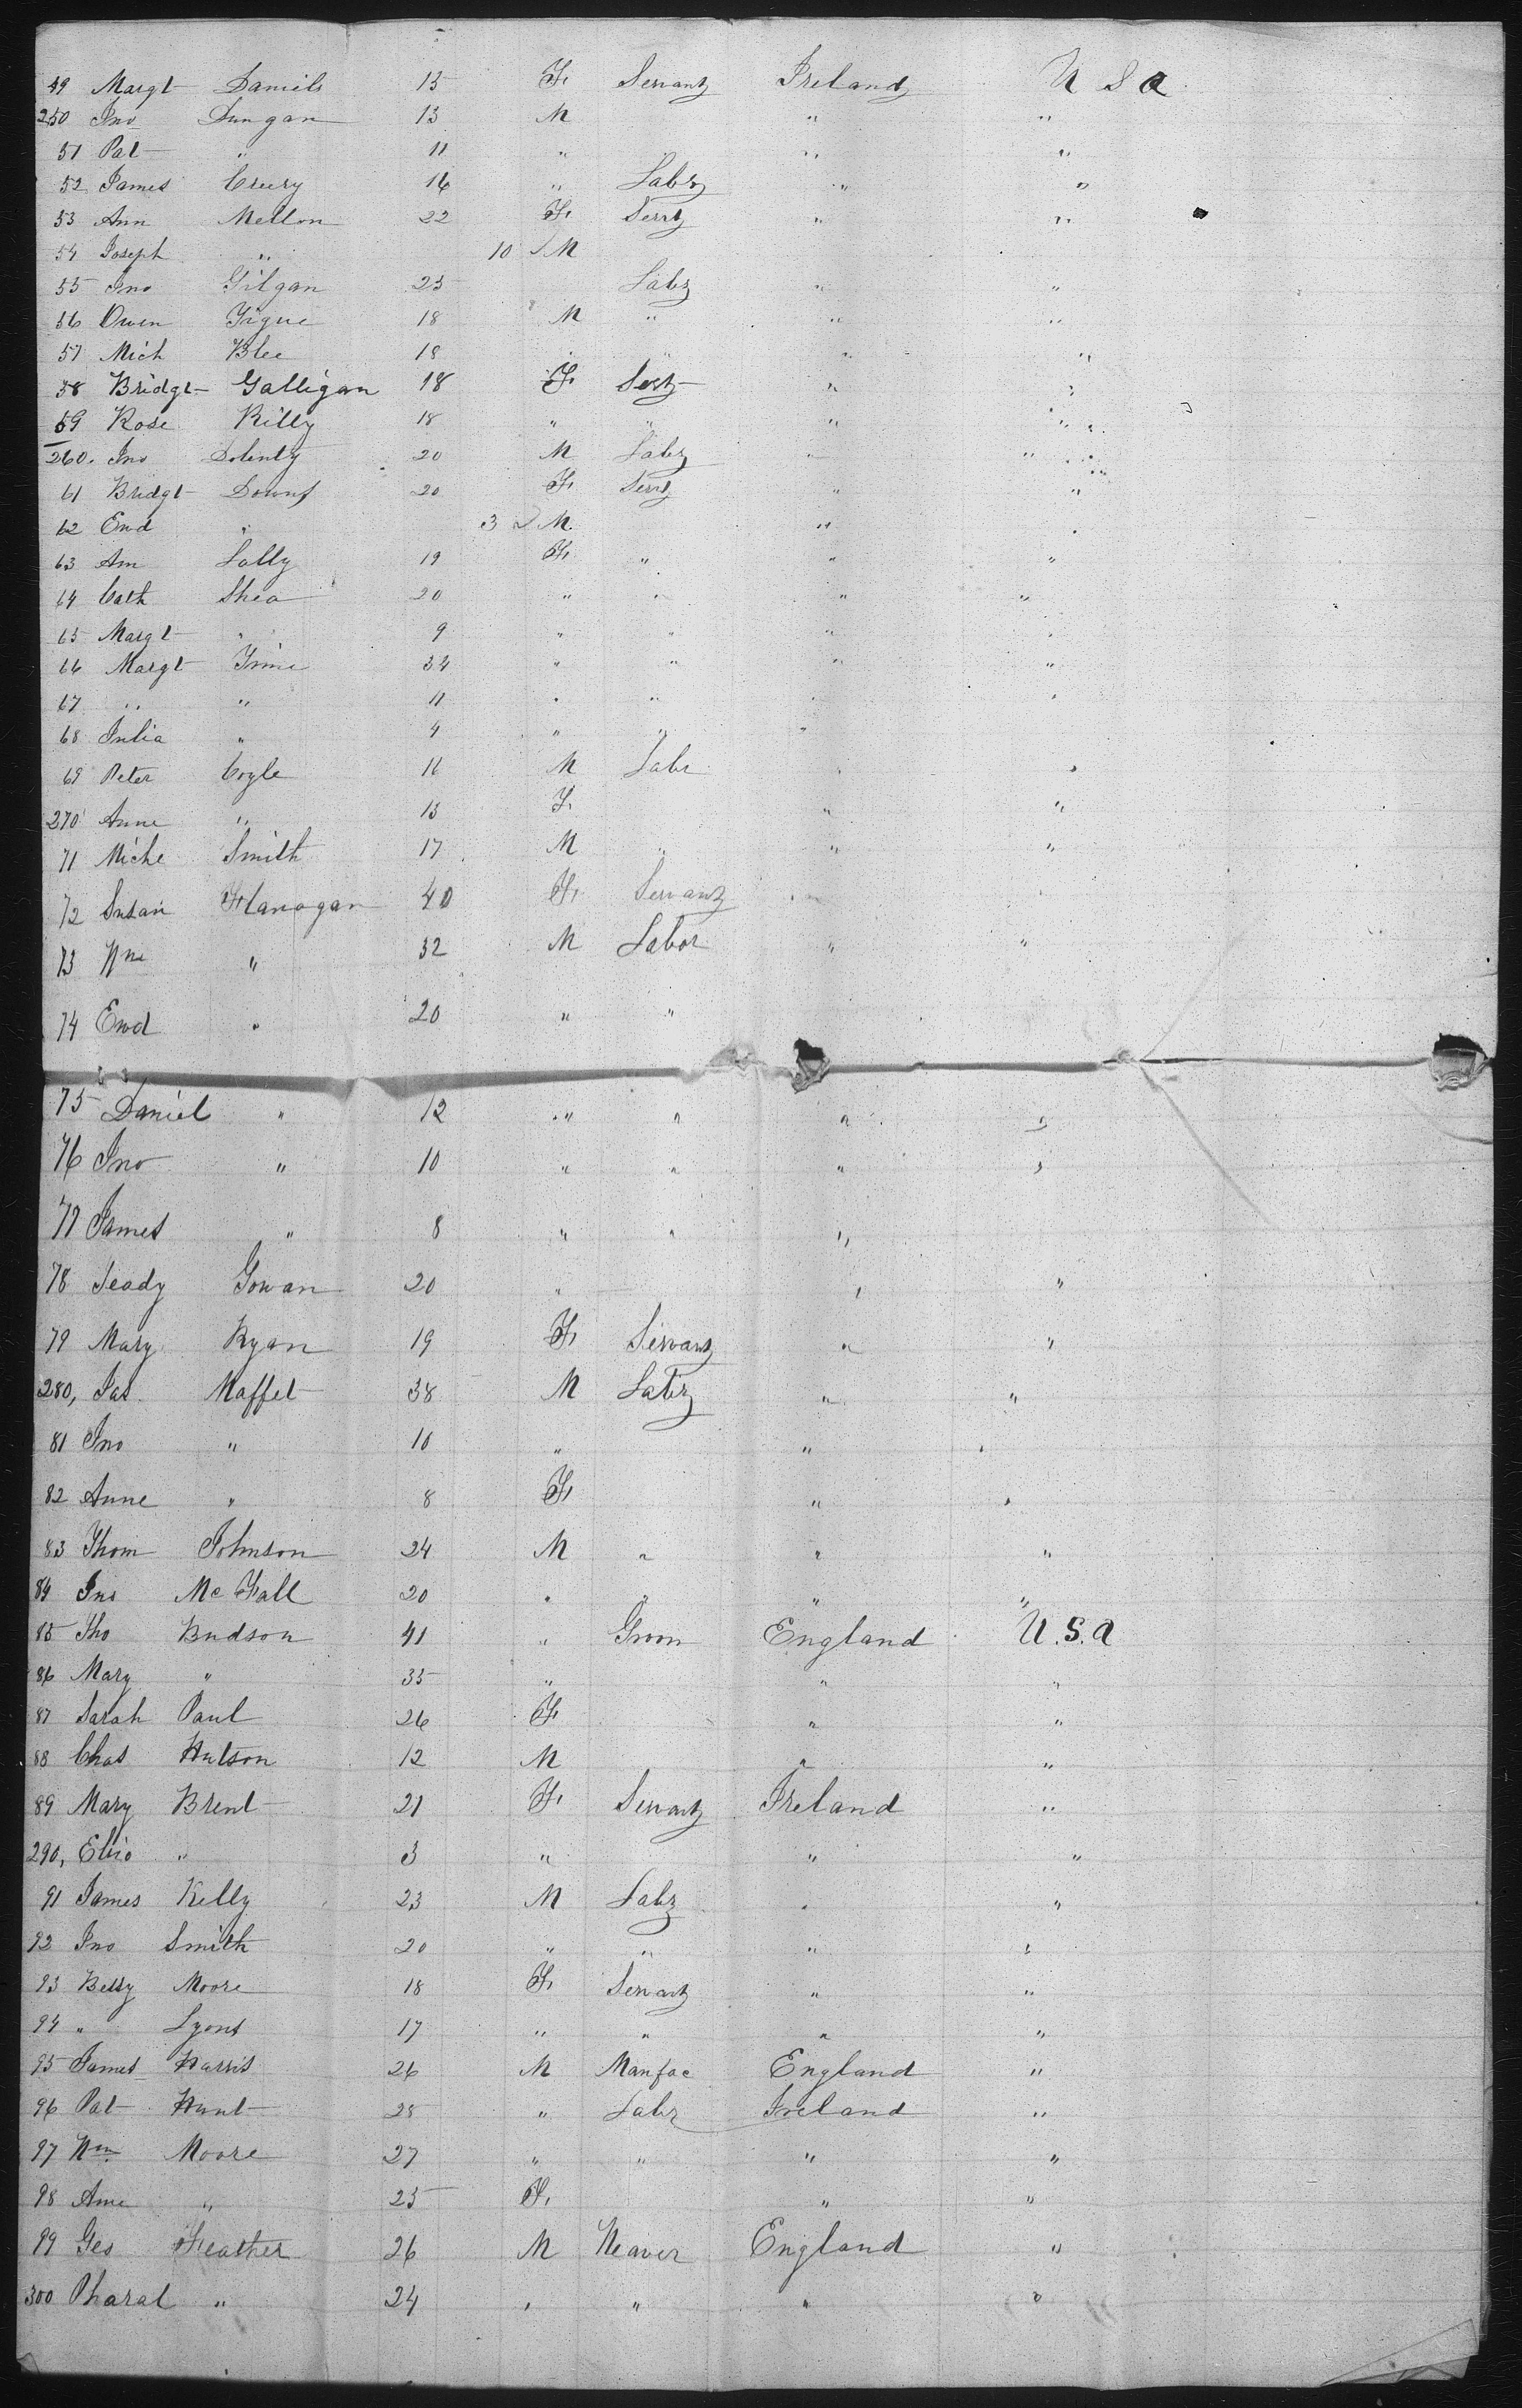 49 Margt Daniels 15 F. Servant Ireland U S a
250 Jno Dungan 13 M " "
51 Pat " 11 " " "
52 James Creery 16 " Labr " "
53 Ann Mellon 22 F. Servt " "
54 Joseph " 10 M
55 Jno Gilgan 25 Labr " "
56 Owen Tigue 18 M " " "
57 Mich Blee 18 " " " "
58 Bridgt Galligan 18 F. Servt " "
59 Rose Rilly 18 " " " "
260. Jno Dolenty 20 M Labr " "
61 Bridgt Downs 20 F. Servt " "
62 End " 3 M. " "
63 Am Lally 19 F. " " "
64 Cath Shea 20 " " " "
65 Margt " 9 " " " "
66 Margt 34 " " " "
67 " " 11 " " " "
68 Julia " 4 " " "
69 Peter Coyle 16 M Labr " "
270 Anne " 13 F. " "
71 Miche Smith 17 M " " "
72 Susan Flanogan 40 F. Servant "
73 Wm " 32 M Labor " "
74 Ewd " 20 " "
75 Daniel " 12 " " " "
76 Jno " 10 " " " "
77 James " 8 " " "
78 Teady Gowan 20 " " "
79 Mary Ryan 19 F. Servant " "
280, Jas. Maffet 38 M Labr " "
81 Jno " 10 " " "
82 Anne " 8 F. " "
83 Thom Johnson 24 M " " "
84 Jno Mc Fall 20 " " " "
85 Tho Budson 41 " Groom England U.S.a
86 Mary " 35 " " "
87 Sarah Paul 26 F. " "
88 Chas Hutson 12 M " "
89 Mary Brent 21 F. Servant Ireland "
290, " 3 " " "
91 James Kelly 23 M Labr " "
92 Jno Smith 20 " " " "
93 Betsy Moore 18 F. Servant " "
94 " Lyons 17 " " " "
95 James Harris 26 M Manfac England "
96 Pat Hunt 28 " Labr Ireland "
97 Wm Moore 27 " " " "
98 Ame " 25 F. " "
99 Geo Feather 26 M Weaver England "
300 Pharal " 24 " " " "